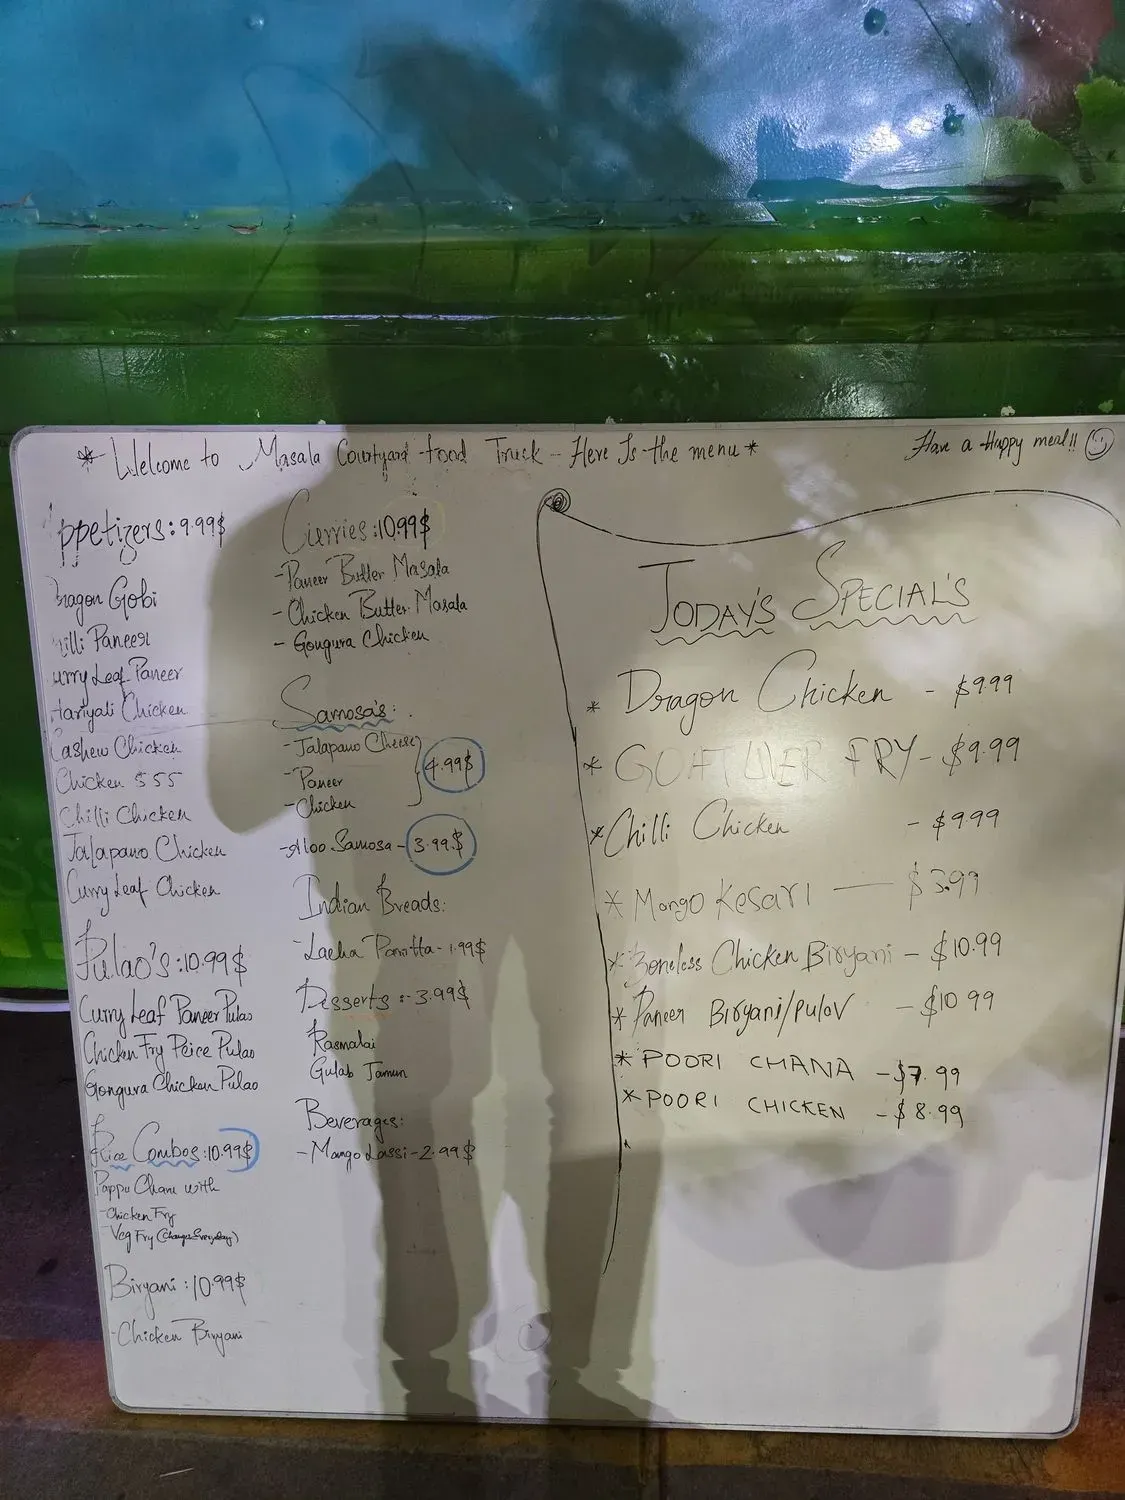 * Welcome to Masala Courtyard food Truck - Here Is the menu *
Have a Happy meal!!
ppetizers: 9.99$
ragon Gobi
illi Paneer
urry Leaf Paneer
Hariyali Chicken
Cashew Chicken
Chicken $55
Chilli Chicken
Jalapano Chicken
Curry Leaf Chicken
Pulao's: 10.99$
Curry Leaf Paneer Pulao
Chicken Fry Peice Pulao
Gongura Chicken Pulao
Rice Combos: 10.99$
Pappu Charu with
- Chicken Fry
- Veg Fry (Changes Everyday)
Biryani: 10.99$
- Chicken Biryani
Curries: 10.99$
- Paneer Butter Masala
- Chicken Butter Masala
- Gongura Chicken
Samosa's:
- Jalapano Cheese
- Paneer
- Chicken
4.99$
- Aloo Samosa - 3.99$
Indian Breads:
- Lacha Parotta - 1.99$
Desserts :- 3.99$
Rasmalai
Gulab Jamun
Beverages:
- Mango Lassi - 2.99$
TODAY'S SPECIAL'S
* Dragon Chicken - $9.99
* GOAT LIVER FRY - $9.99
* Chilli Chicken - $9.99
* Mango Kesari — $3.99
* Boneless Chicken Biryani - $10.99
* Paneer Biryani/pulov - $10.99
* POORI CHANA - $7.99
* POORI CHICKEN - $8.99